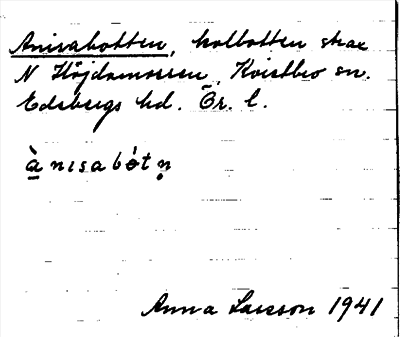 Anisabotten, kolbotten strax
N Höjdamossen, Kvistbro sn.
Edsbergs hd. Ör. l.
ànɩsabòtn̥
Anna Larsson 1941